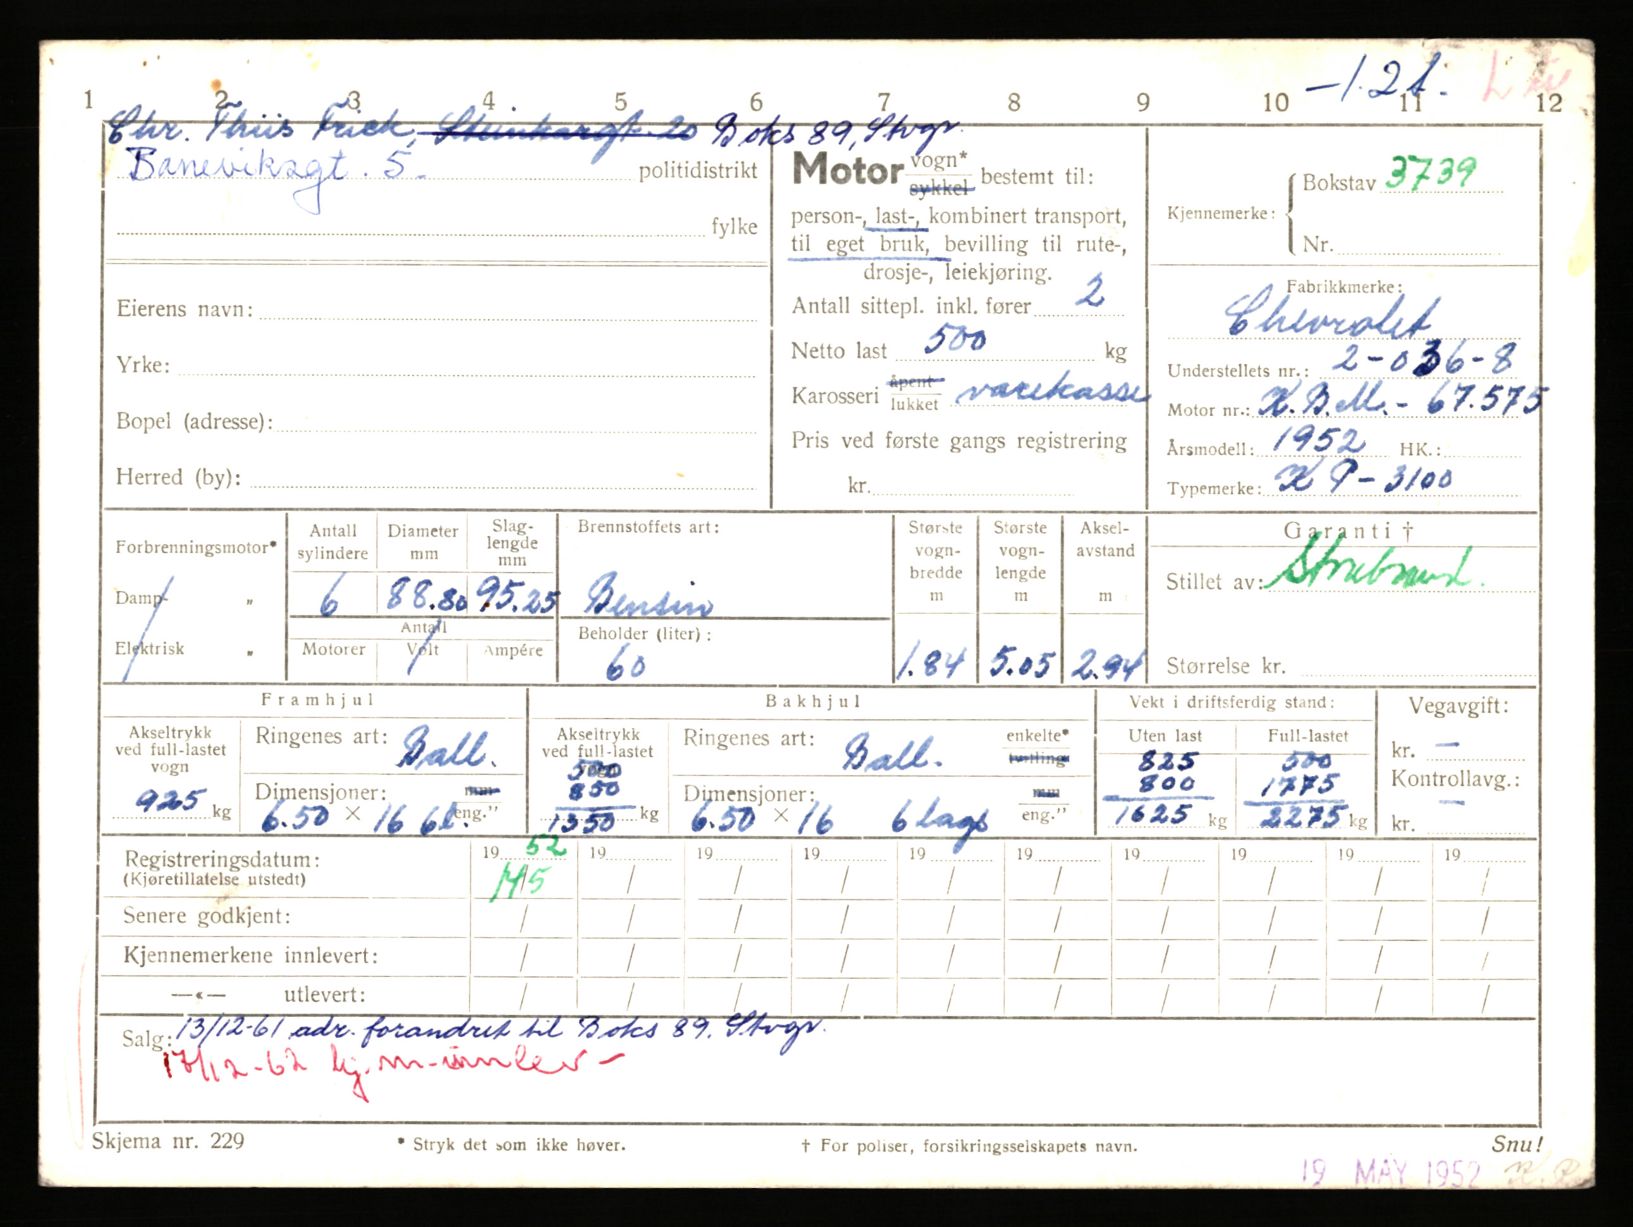 -1.2t.
1 2 3 4 5 6 7 8 9 10 11 12
Chr. Thiis Frick, Steinkargt. 20 Boks 89, Stvgr.
Baneviksgt. 5. politidistrikt
fylke
Eierens navn:
Yrke:
Bopel (adresse):
Herred (by):
Motor vogn* sykkel bestemt til:
person-, last-, kombinert transport,
til eget bruk, bevilling til rute-,
drosje-, leiekjøring.
Antall sittepl. inkl. fører 2
Netto last 500 kg
Karosseri åpent lukket varekasse
Pris ved første gangs registrering
kr.
Kjennemerke: { Bokstav 3739
Nr.
Fabrikkmerke:
Chevrolet
Understellets nr.: 2-036-8
Motor nr.: K.B.M.- 67.575
Årsmodell: 1952 HK.:
Typemerke: K P-3100
Forbrenningsmotor*
Damp- „
Elektrisk „
Antall sylindere Diameter mm Slag-lengde mm
6 88.80 95.25
Antall
Motorer Volt Ampére
Brennstoffets art:
Bensin
Beholder (liter):
60
Største vogn-bredde m Største vogn-lengde m Aksel-avstand m
1.84 5.05 2.94
Garanti †
Stillet av: Storebrand.
Størrelse kr.
Framhjul
Akseltrykk ved full-lastet vogn
925 kg
Ringenes art: Ball.
Dimensjoner: mm
6.50 × 16 6l. eng."
Bakhjul
Akseltrykk ved full-lastet vogn
500
850
1350 kg
Ringenes art: Ball. enkelte* tvilling
Dimensjoner: mm
6.50 × 16 6 lags eng."
Vekt i driftsferdig stand:
Uten last Full-lastet
825 500
800 1775
1625 kg 2275 kg
Vegavgift:
kr. —
Kontrollavg.:
kr. —
Registreringsdatum: 19 52 19 19 19 19 19 19 19 19 19
(Kjøretillatelse utstedt) 14/5 / / / / / / / / /
Senere godkjent: / / / / / / / / / /
Kjennemerkene innlevert: / / / / / / / / / /
—«— utlevert: / / / / / / / / / /
Salg: 13/12-61 adr. forandret til Boks 89. Stvgr.
17/12-62 kj.m-innlev -
Skjema nr. 229 * Stryk det som ikke høver. † For poliser, forsikringsselskapets navn. Snu!
19 MAY 1952